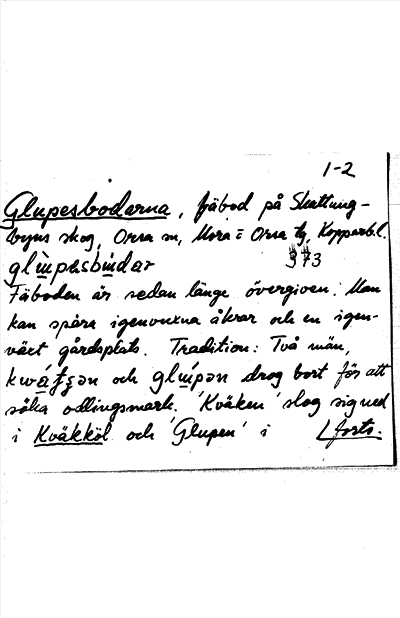 1-2
Glupesboderna, fäbod på Skattung-
byns skog, Orsa sn, Mora o Orsa tg, Kopparb.l.
glùpesbùdar 373
Fäboden är sedan länge övergiven. Man
kan spåra igenvuxna åkrar och en igen-
växt gårdsplats. Tradition: Två män,
och drog bort för att
söka odlingsmark. 'Kväken' slog sig ned
i Kväkköl och 'Glupen' i forts.